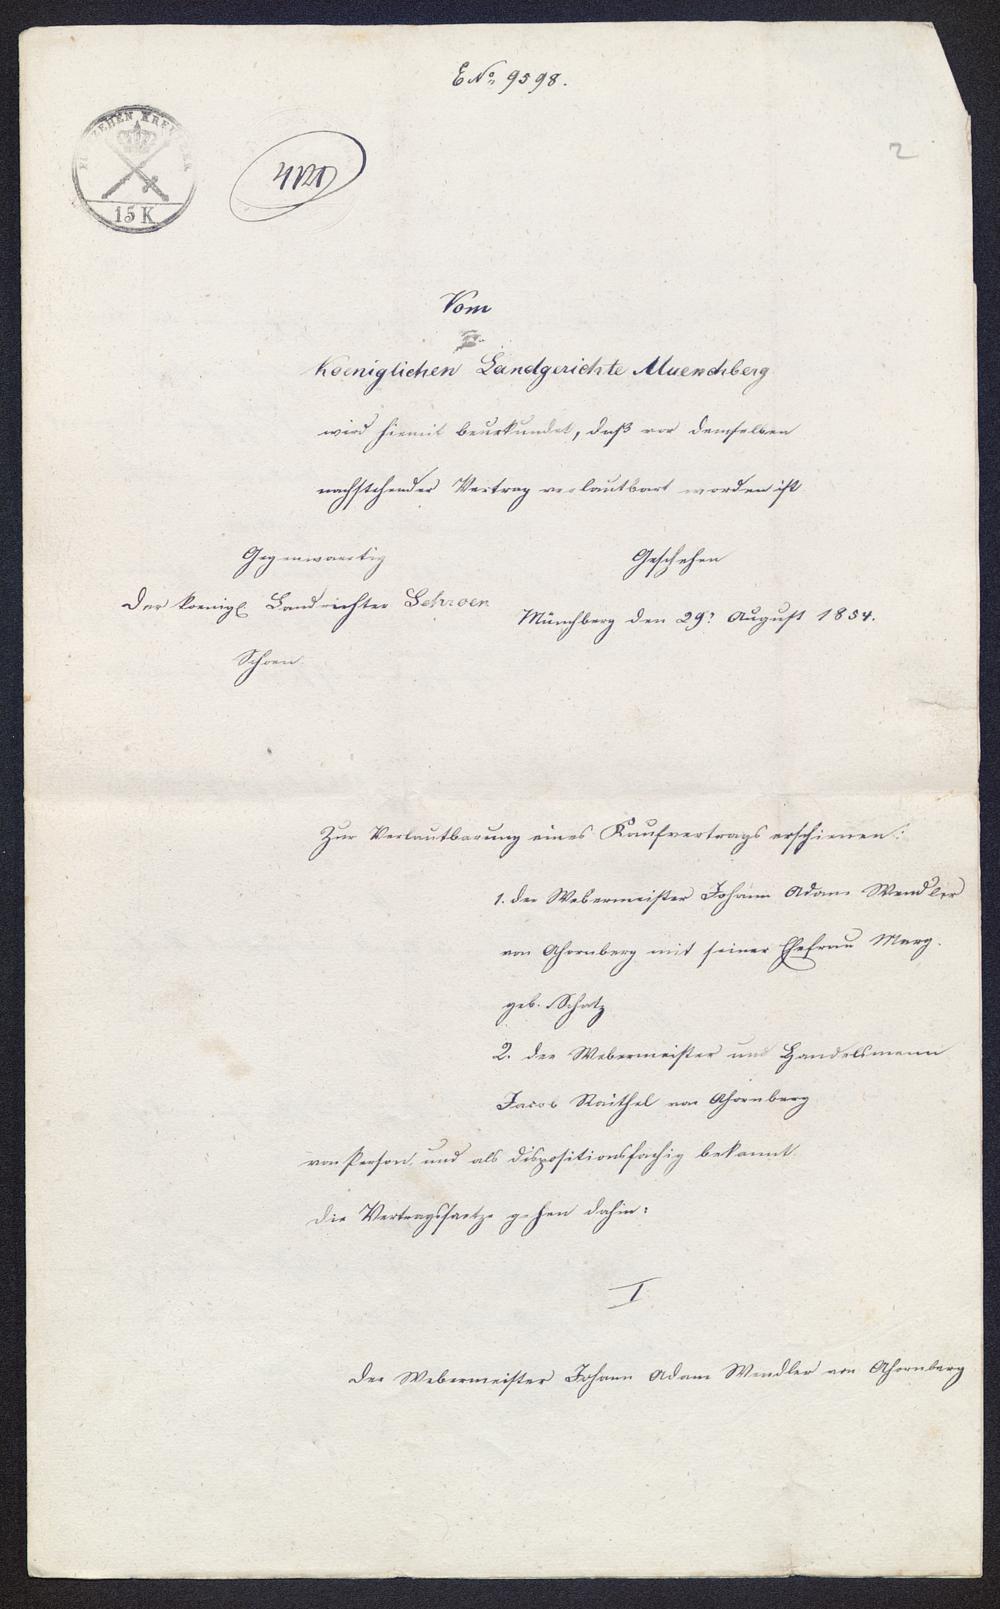 E No 9598.
FÜNFZEHEN KREUZER
15 K
2
Vom
Koeniglichen Landgerichte Muenchberg
wird hiemit beurkundet, daß vor demselben
nachstehender Vertrag verlautbart worden ist
Gegenwaertig
Geschehen
der koenigl Landrichter Schroen
Münchberg den 29. August 1854.
Zur Verlautbarung eines Kaufvertrags erschienen:
1. der Webermeister Johann Adam Wendler
von Ahornberg mit seiner Ehefrau Marg.
geb. Schatz
2. der Webermeister und Handelsmann
Jacob Raithel von Ahornberg
von Person und als dispositionsfaehig bekannt.
die Vertragssaetze gehen dahin:
I.
Der Webermeister Johann Adam Wendler von Ahornberg